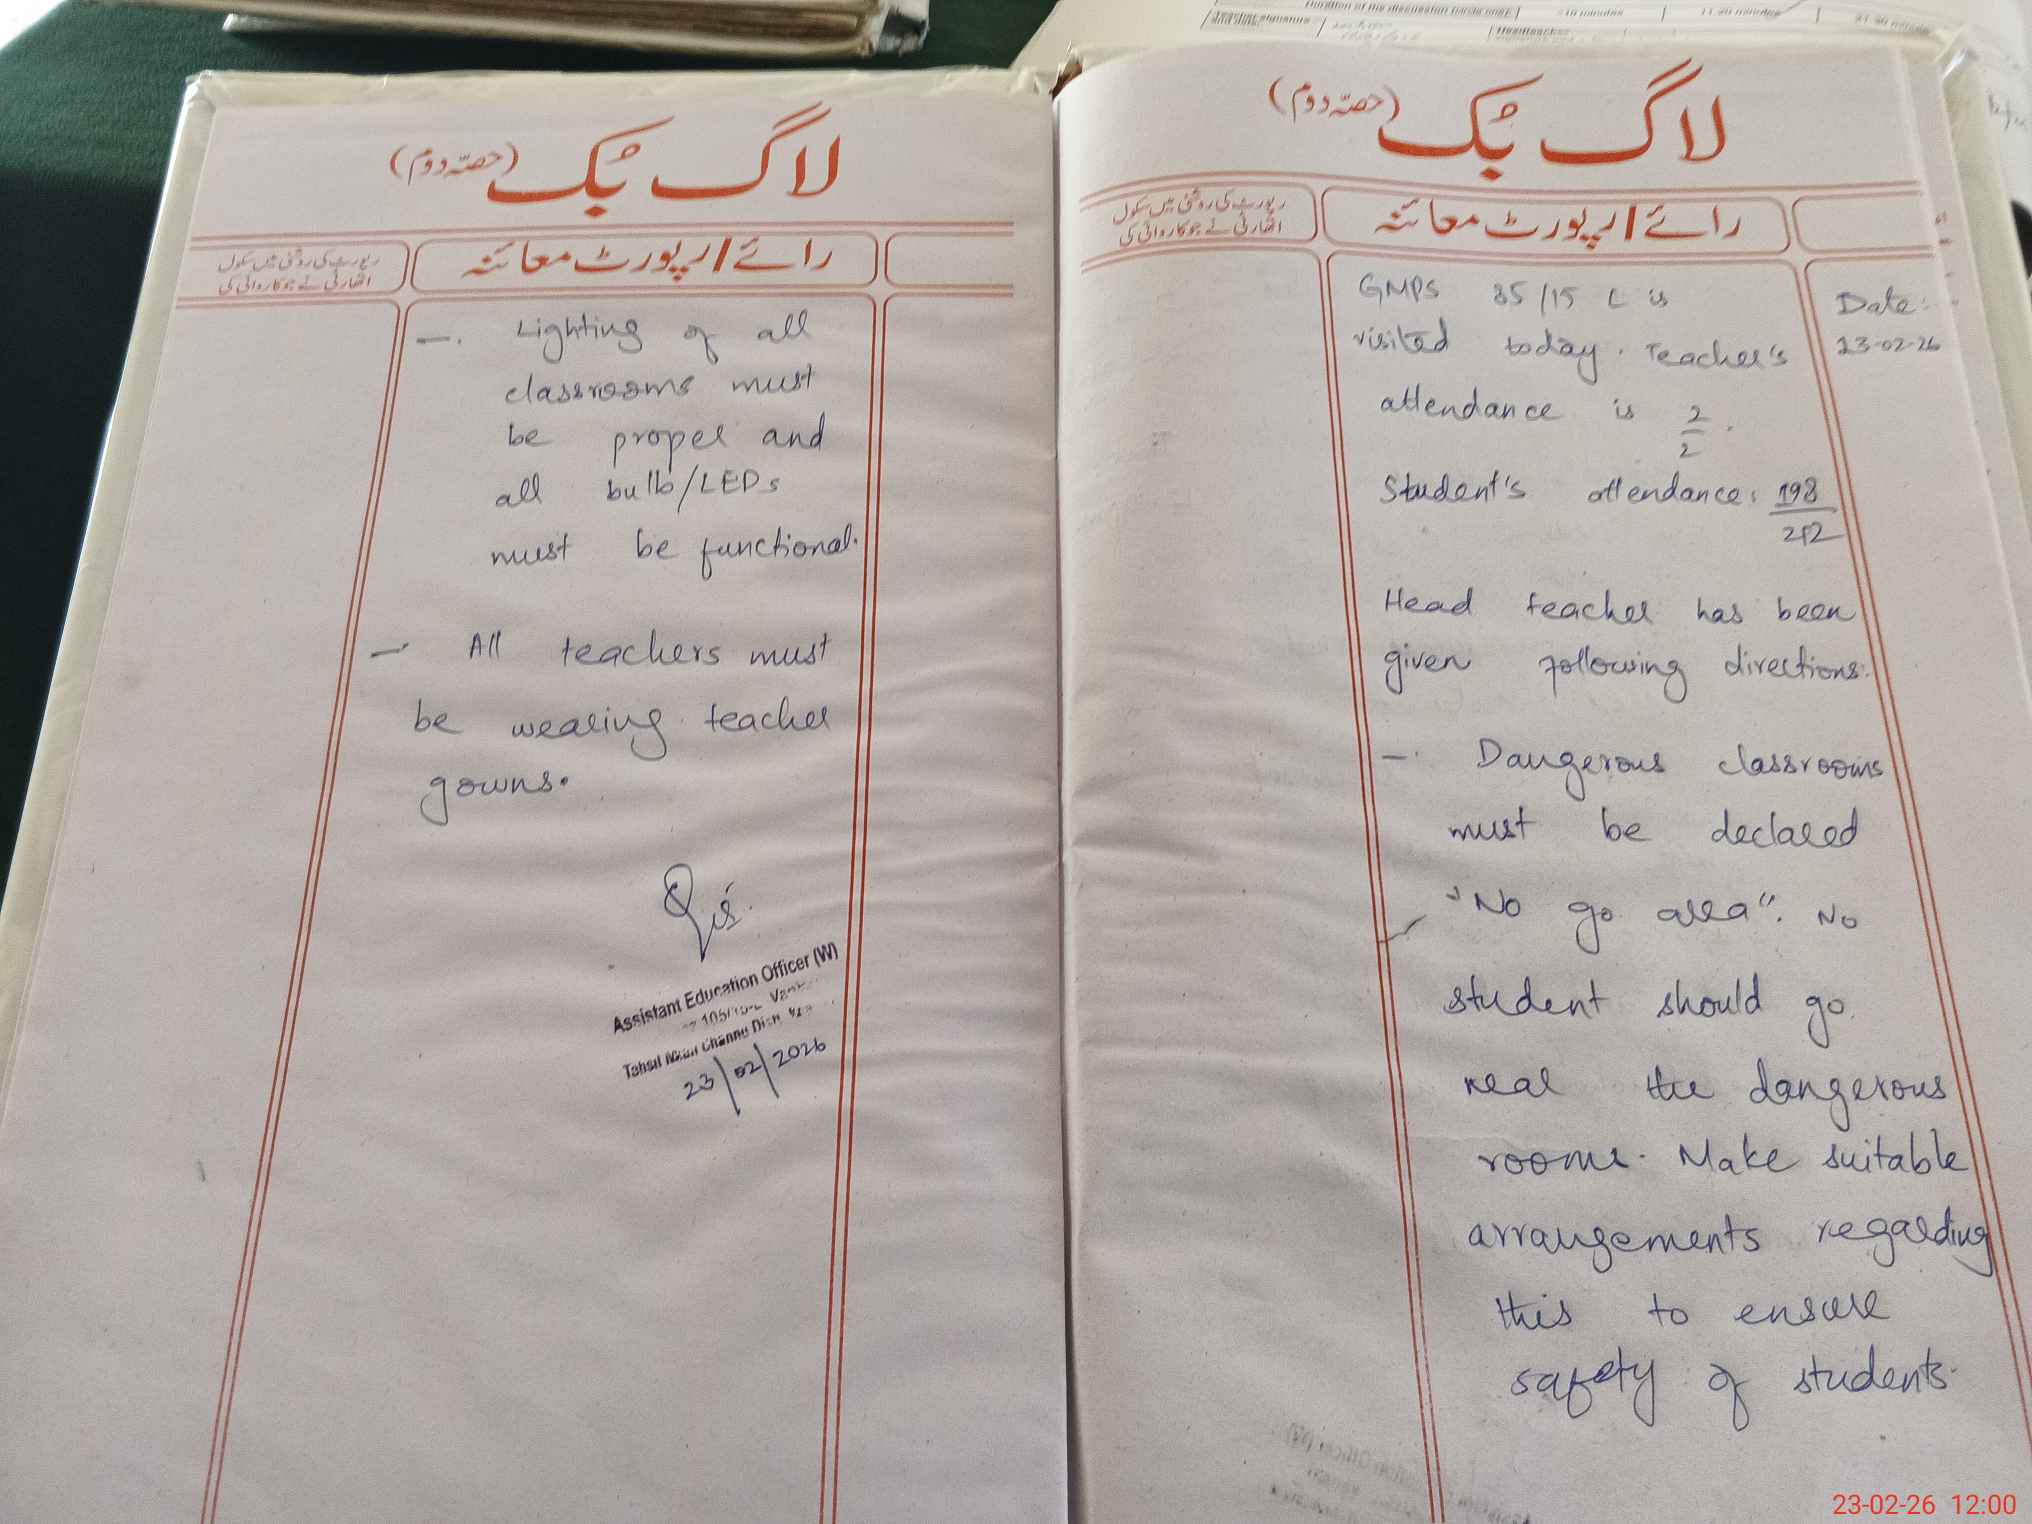 لاگ بُک (حصّہ دوم)
رپورٹ کی روشنی میں سکول
اتھارٹی نے جو کاروائی کی
رائے / رپورٹ معائنہ
GMPS 85/15 L is
visited today. Teacher's
attendance is 2
2
Date:
23-02-26
Student's attendance: 198
212
Head teacher has been
given following directions:
-. Dangerous classrooms
must be declared
"No go area". No
student should go
near the dangerous
rooms. Make suitable
arrangements regarding
this to ensure
safety of students.
لاگ بُک (حصّہ دوم)
رپورٹ کی روشنی میں سکول
اتھارٹی نے جو کاروائی کی
رائے / رپورٹ معائنہ
-. Lighting of all
classrooms must
be proper and
all bulb/LEDs
must be functional.
- All teachers must
be wearing teacher
gowns.
Assistant Education Officer (W)
Tehsil Mian Channu
23/02/2026
23-02-26 12:00